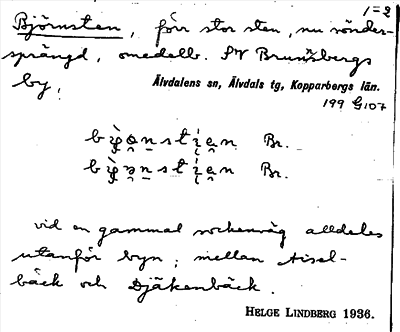 1-2
Björnsten, förr stor sten, nu sönder-
sprängd, omedelb. SV Brunnsbergs
by.
Älvdalens sn, Älvdals tg, Kopparbergs län.
199 G107
Br.
Br.
vid en gammal sockenväg alldeles
utanför byn; mellan Aisel-
bäck och Djäkenbäck.
HELGE LINDBERG 1936.